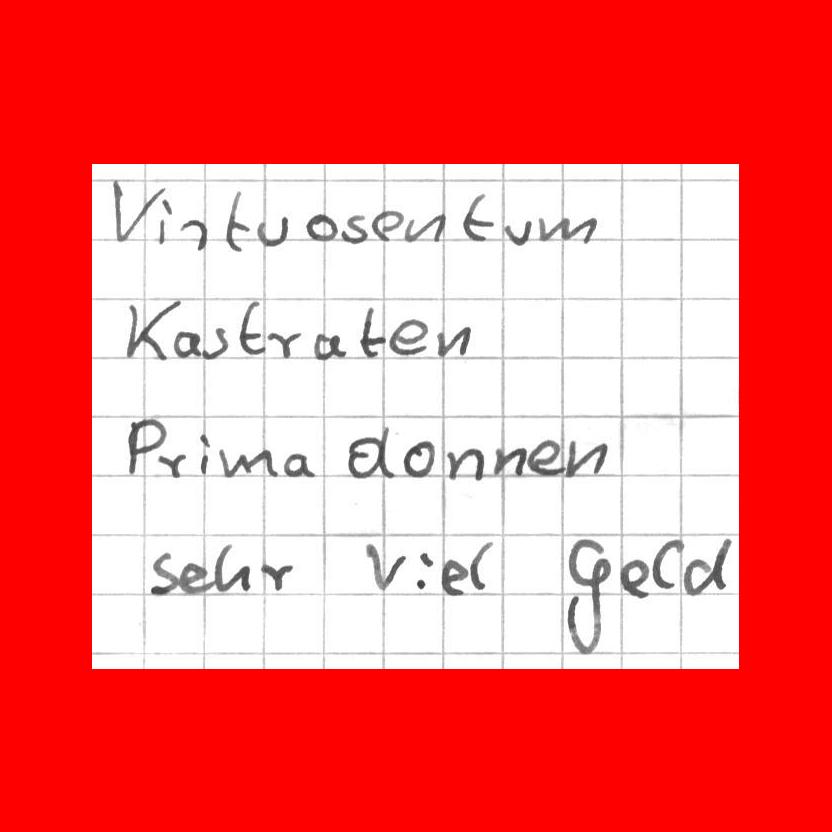 Virtuosentum
Kastraten
Prima donnen
sehr viel Geld